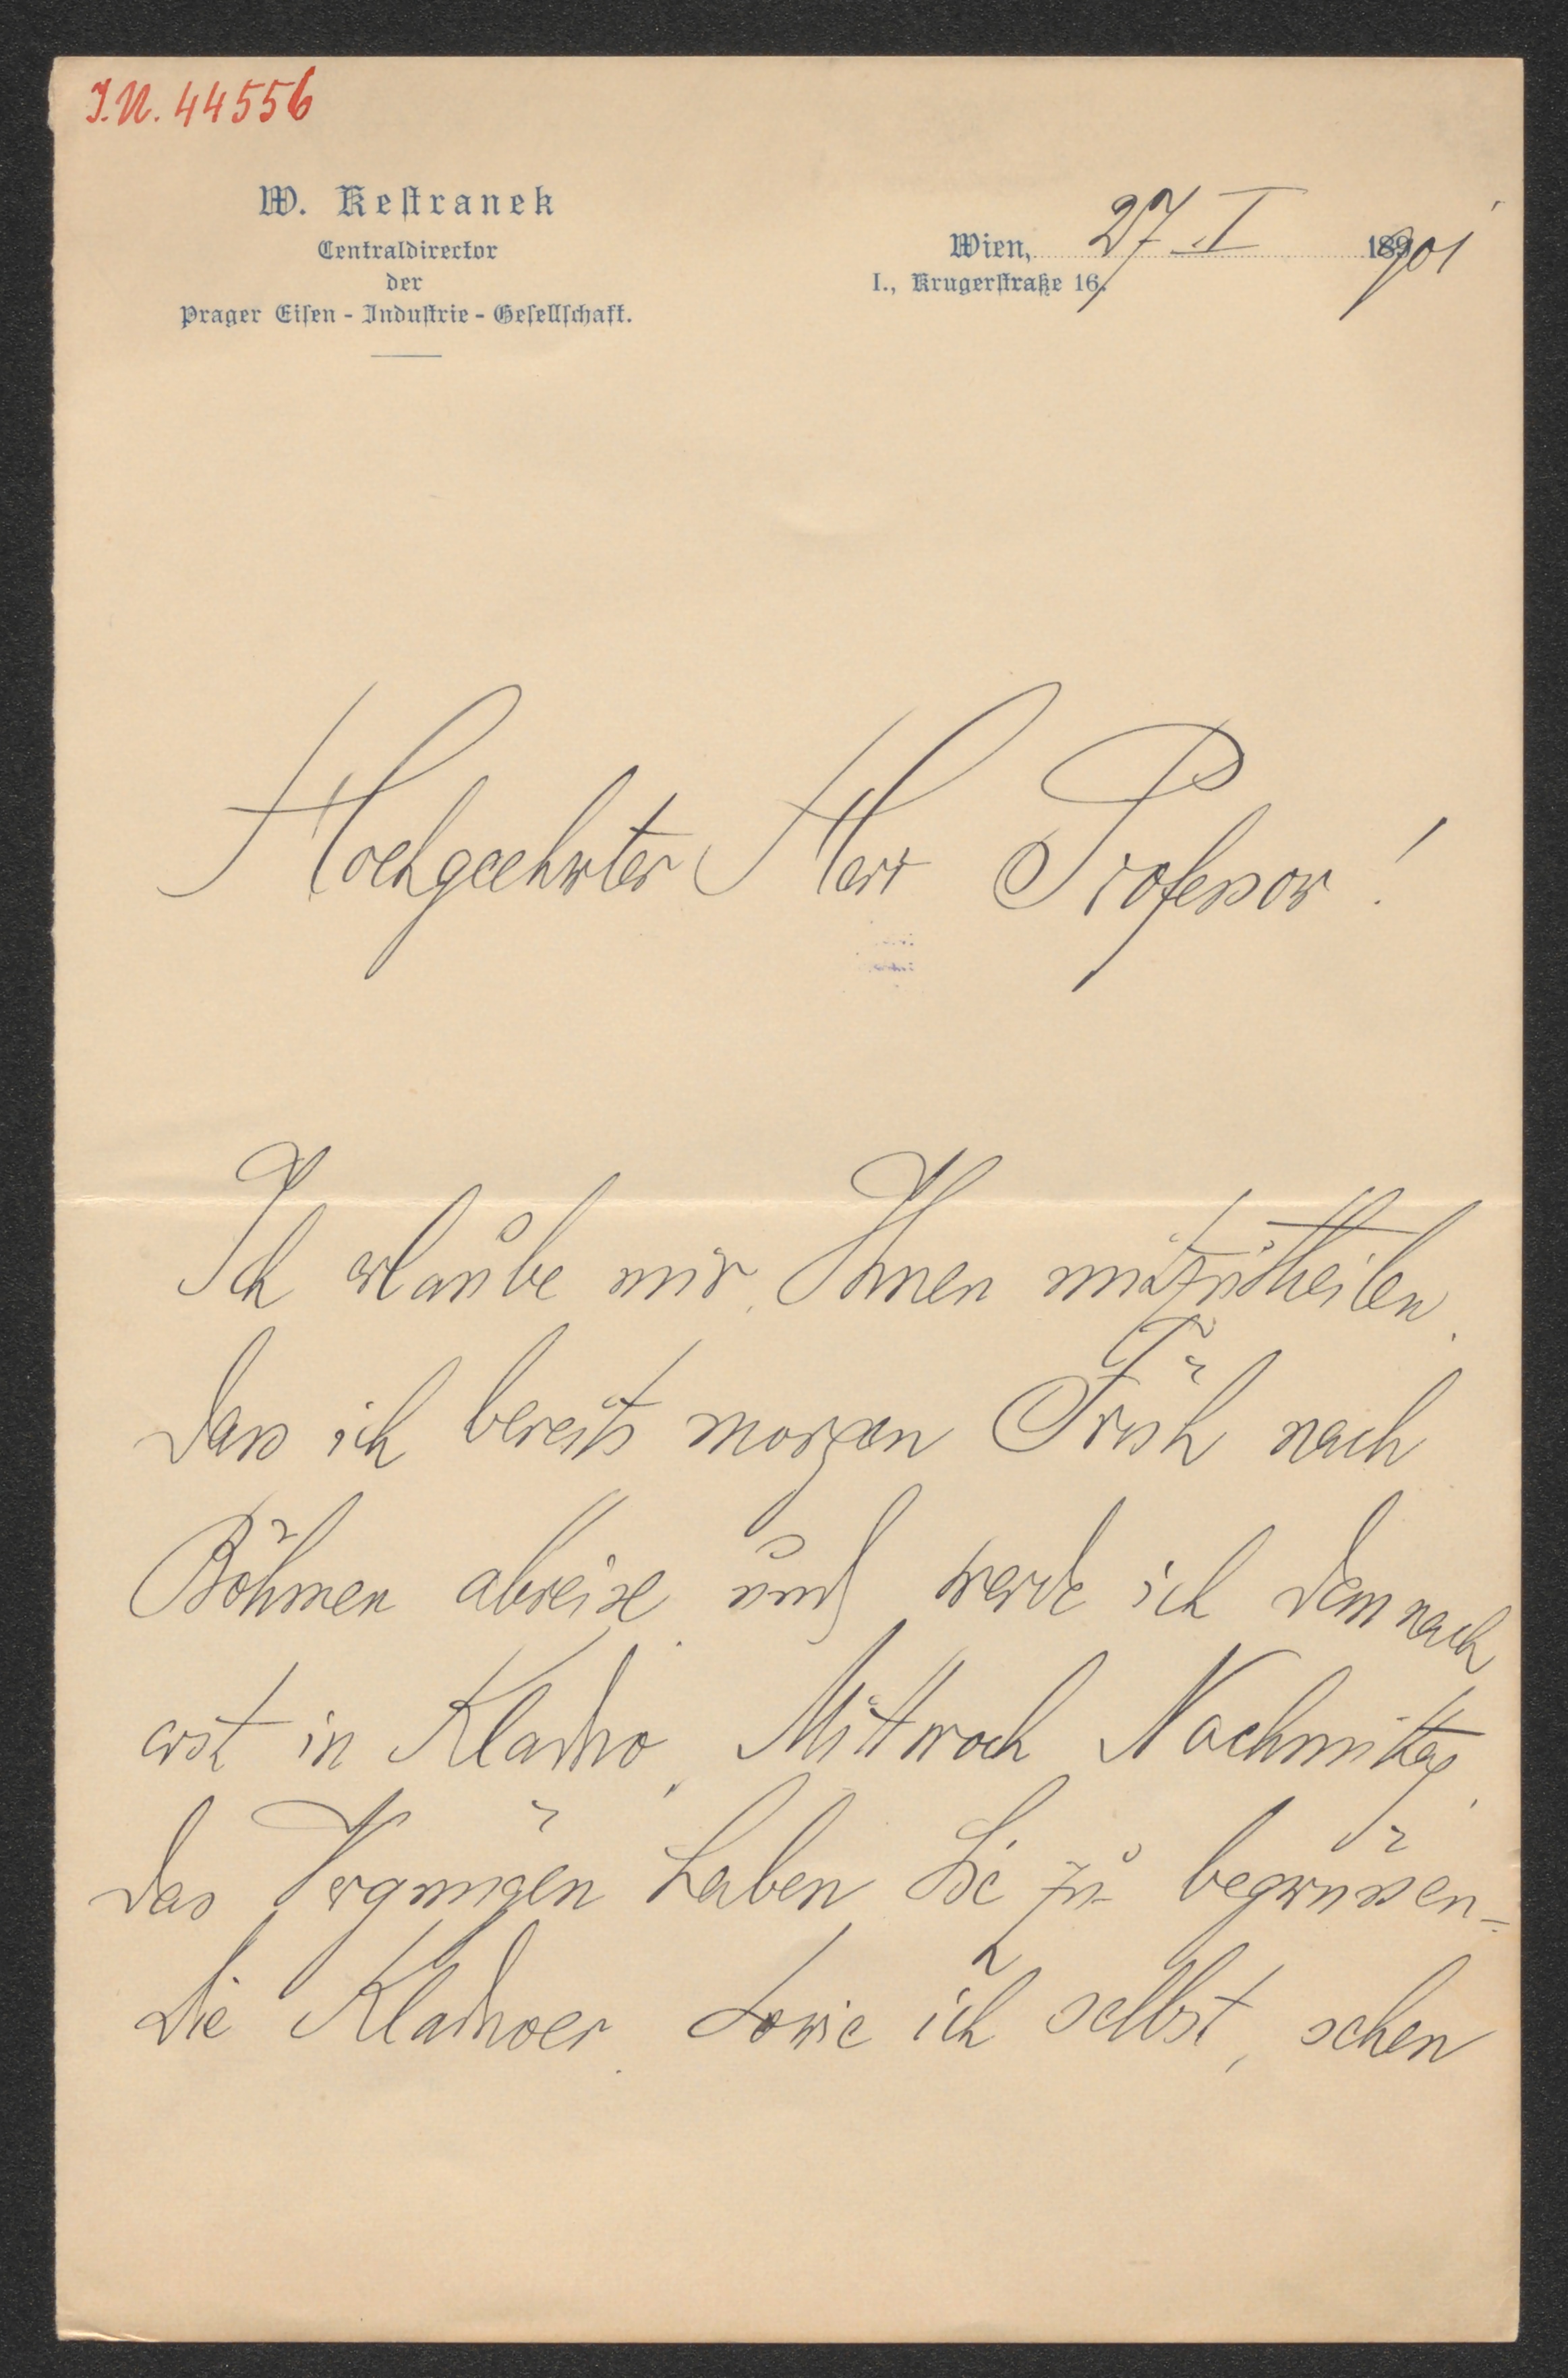 I.N. 44556
W. Kestranek
Centraldirector
der
Prager Eisen-Industrie-Gesellschaft.
Wien, 27 I 1901
I., Krugerstraße 16.
Hochgeehrter Herr Professor!
Ich erlaube mir, Ihnen mitzutheilen,
dass ich bereits morgen Früh nach
Böhmen abreise, und werde ich demnach
erst in Kladno, Mittwoch Nachmittag,
das Vergnügen haben Sie zu begrüssen-
Die Kladnoer, sowie ich selbst, sehen